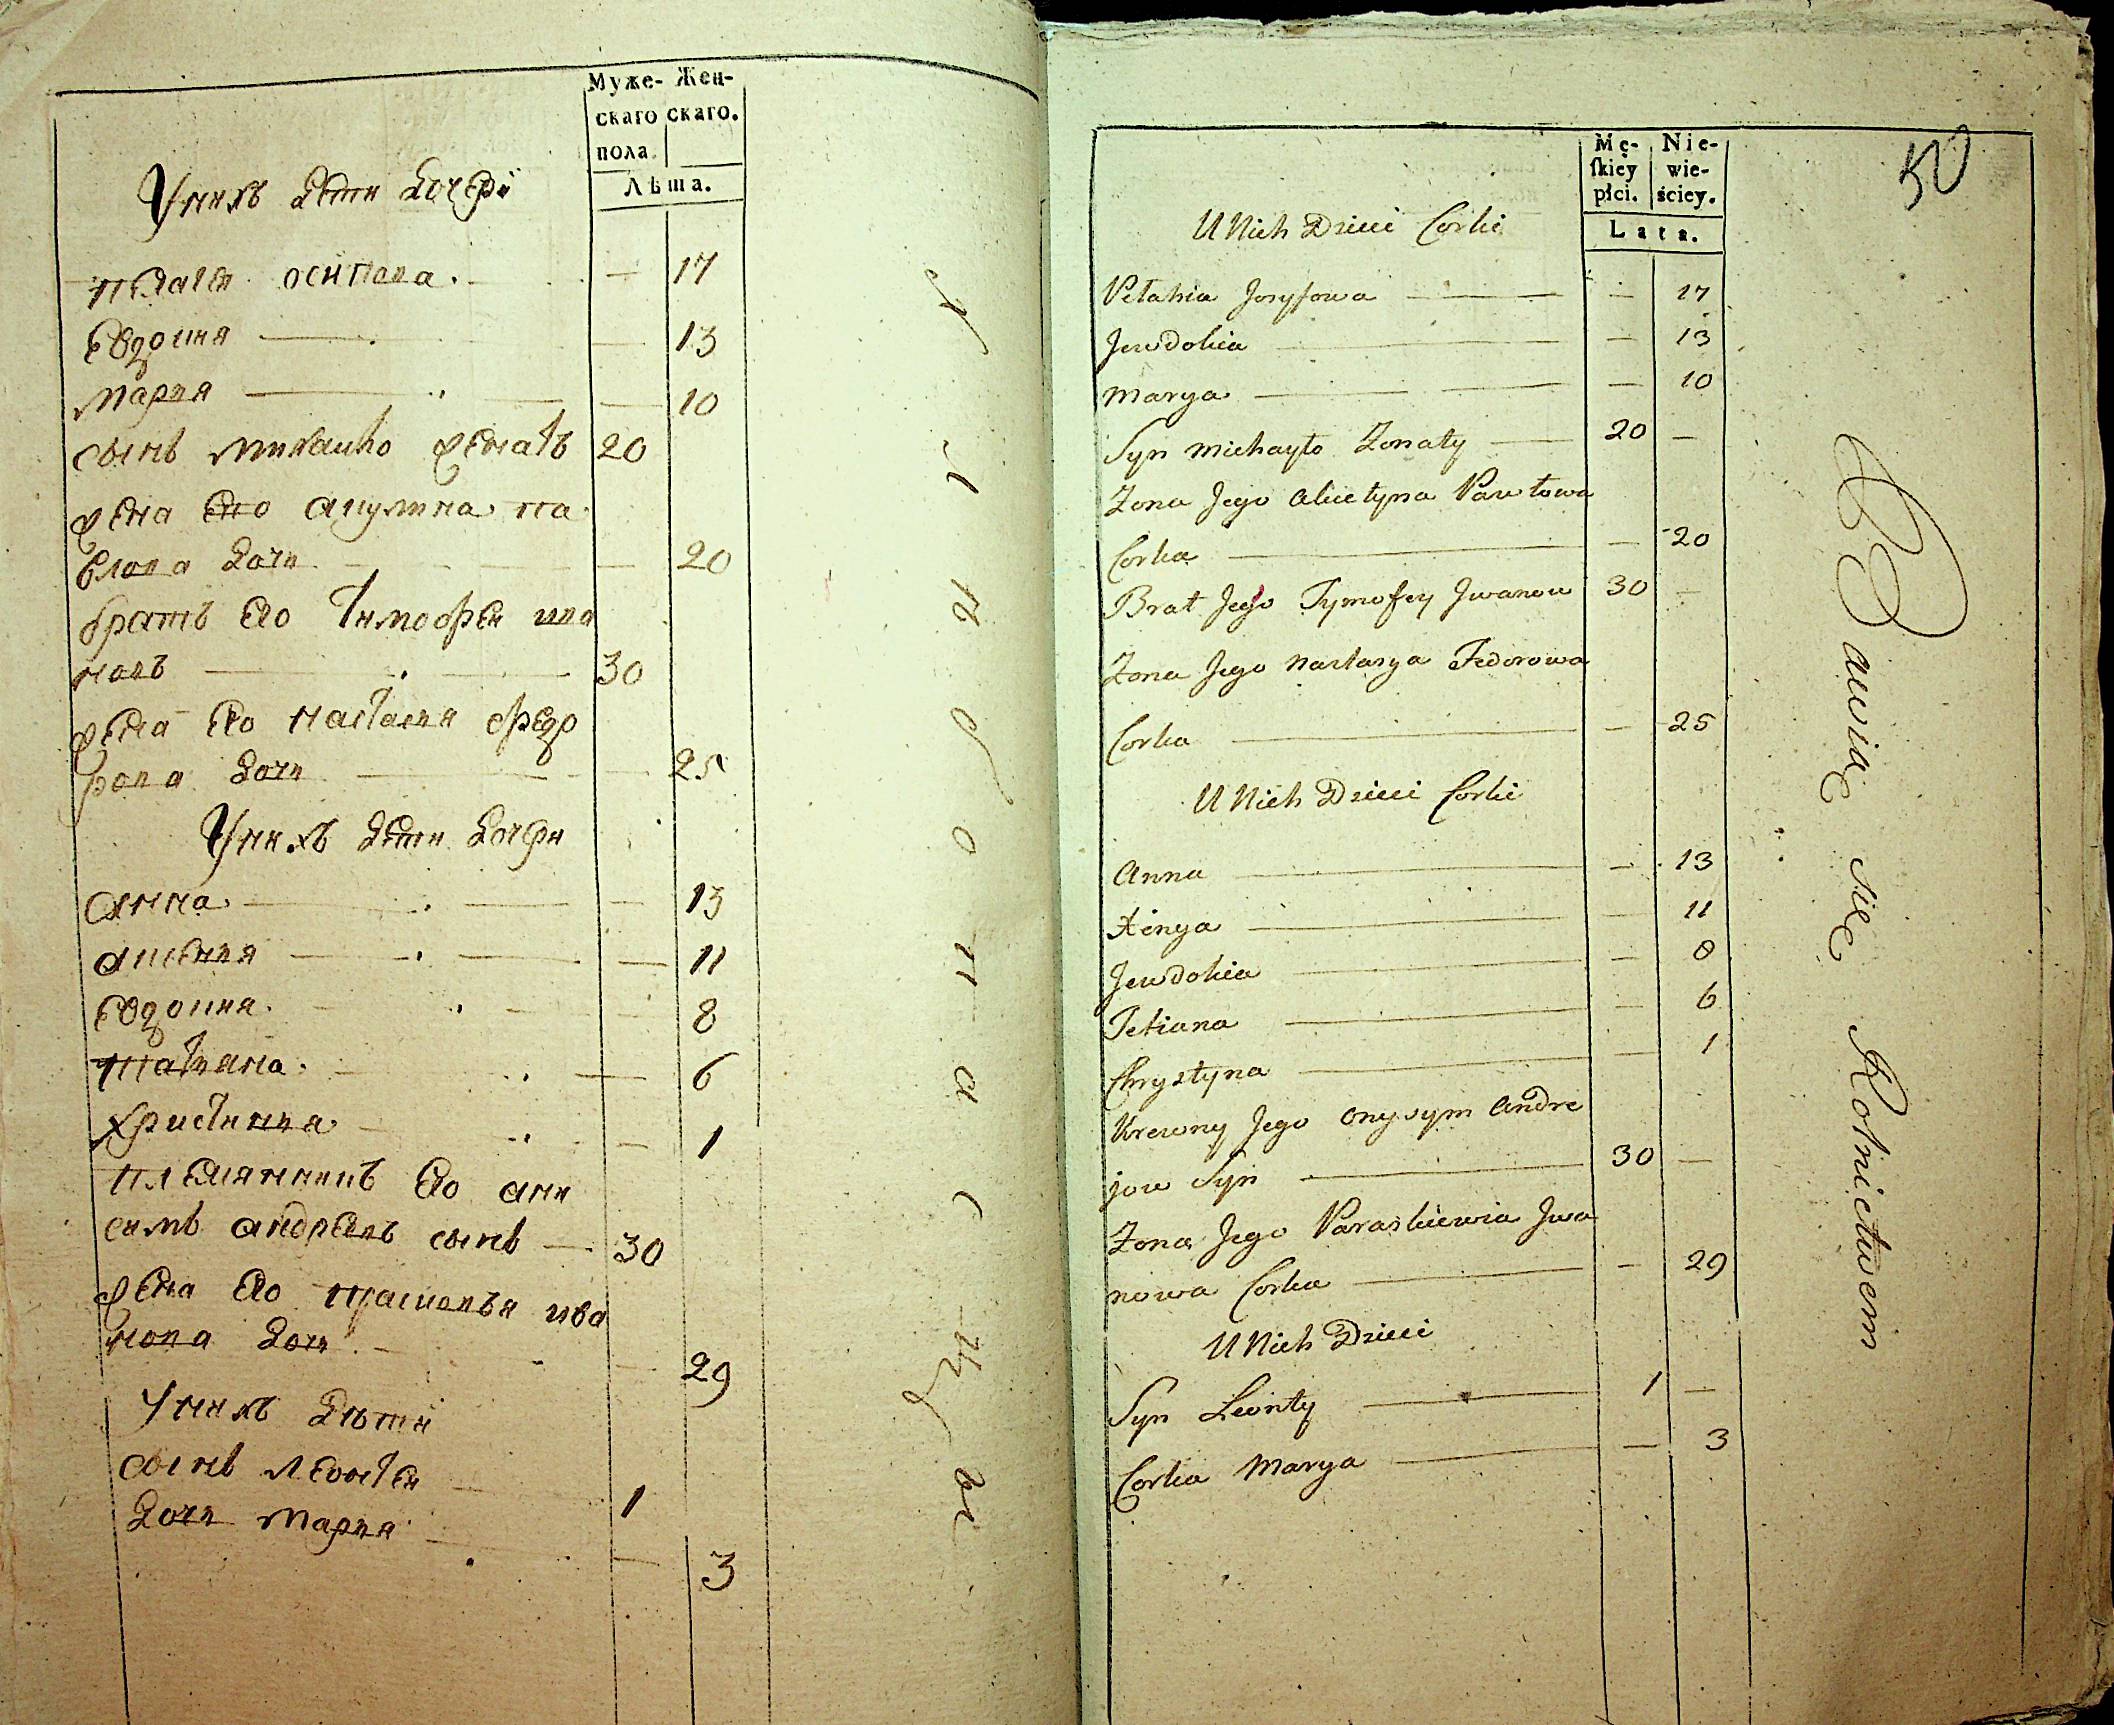 Муже- Жен-
скаго скаго.
пола.
Лѣта.
У нихъ дети дочери
пелагея осипова — 17
Евдокия — 13
Мария — 10
сынъ михаило женатъ 20
жена ево акулина па
влова дочь — 20
братъ ево тимофеи ива
новъ 30
жена ево настасия федо
рова дочь — 25
У нихъ дети дочери
Анна — 13
аксения — 11
Евдокия — 8
татияна — 6
христиния — 1
племянникъ ево ани
симъ андреевъ сынъ 30
жена ево прасковья ива
нова дочь — 29
У нихъ дѣти
сынъ леонтеи 1
дочь мария — 3
50
Mę- Nie-
skiey wie-
płci. ściey.
Lata.
U Nich Dzieci Corki
Pełahia Jozyfowa — 17
Jewdokia — 13
Marya — 10
Syn Michayło Zonaty 20 —
Zona Jego Akietyna Pawłowa
Corka — 20
Brat Jego Tymofey Jwanow 30 —
Zona Jego Nastasya Fedorowa
Corka — 25
U Nich Dzieci Corki
Anna — 13
Xenya — 11
Jewdokia — 8
Tetiana — 6
Chrystyna — 1
Krewny Jego Onysym Andre
jow Syn 30 —
Zona Jego Paraskiewia Jwa
nowa Corka — 29
U Nich Dzieci
Syn Leonty 1 —
Corka Marya — 3
Bawią się Rolnictwem